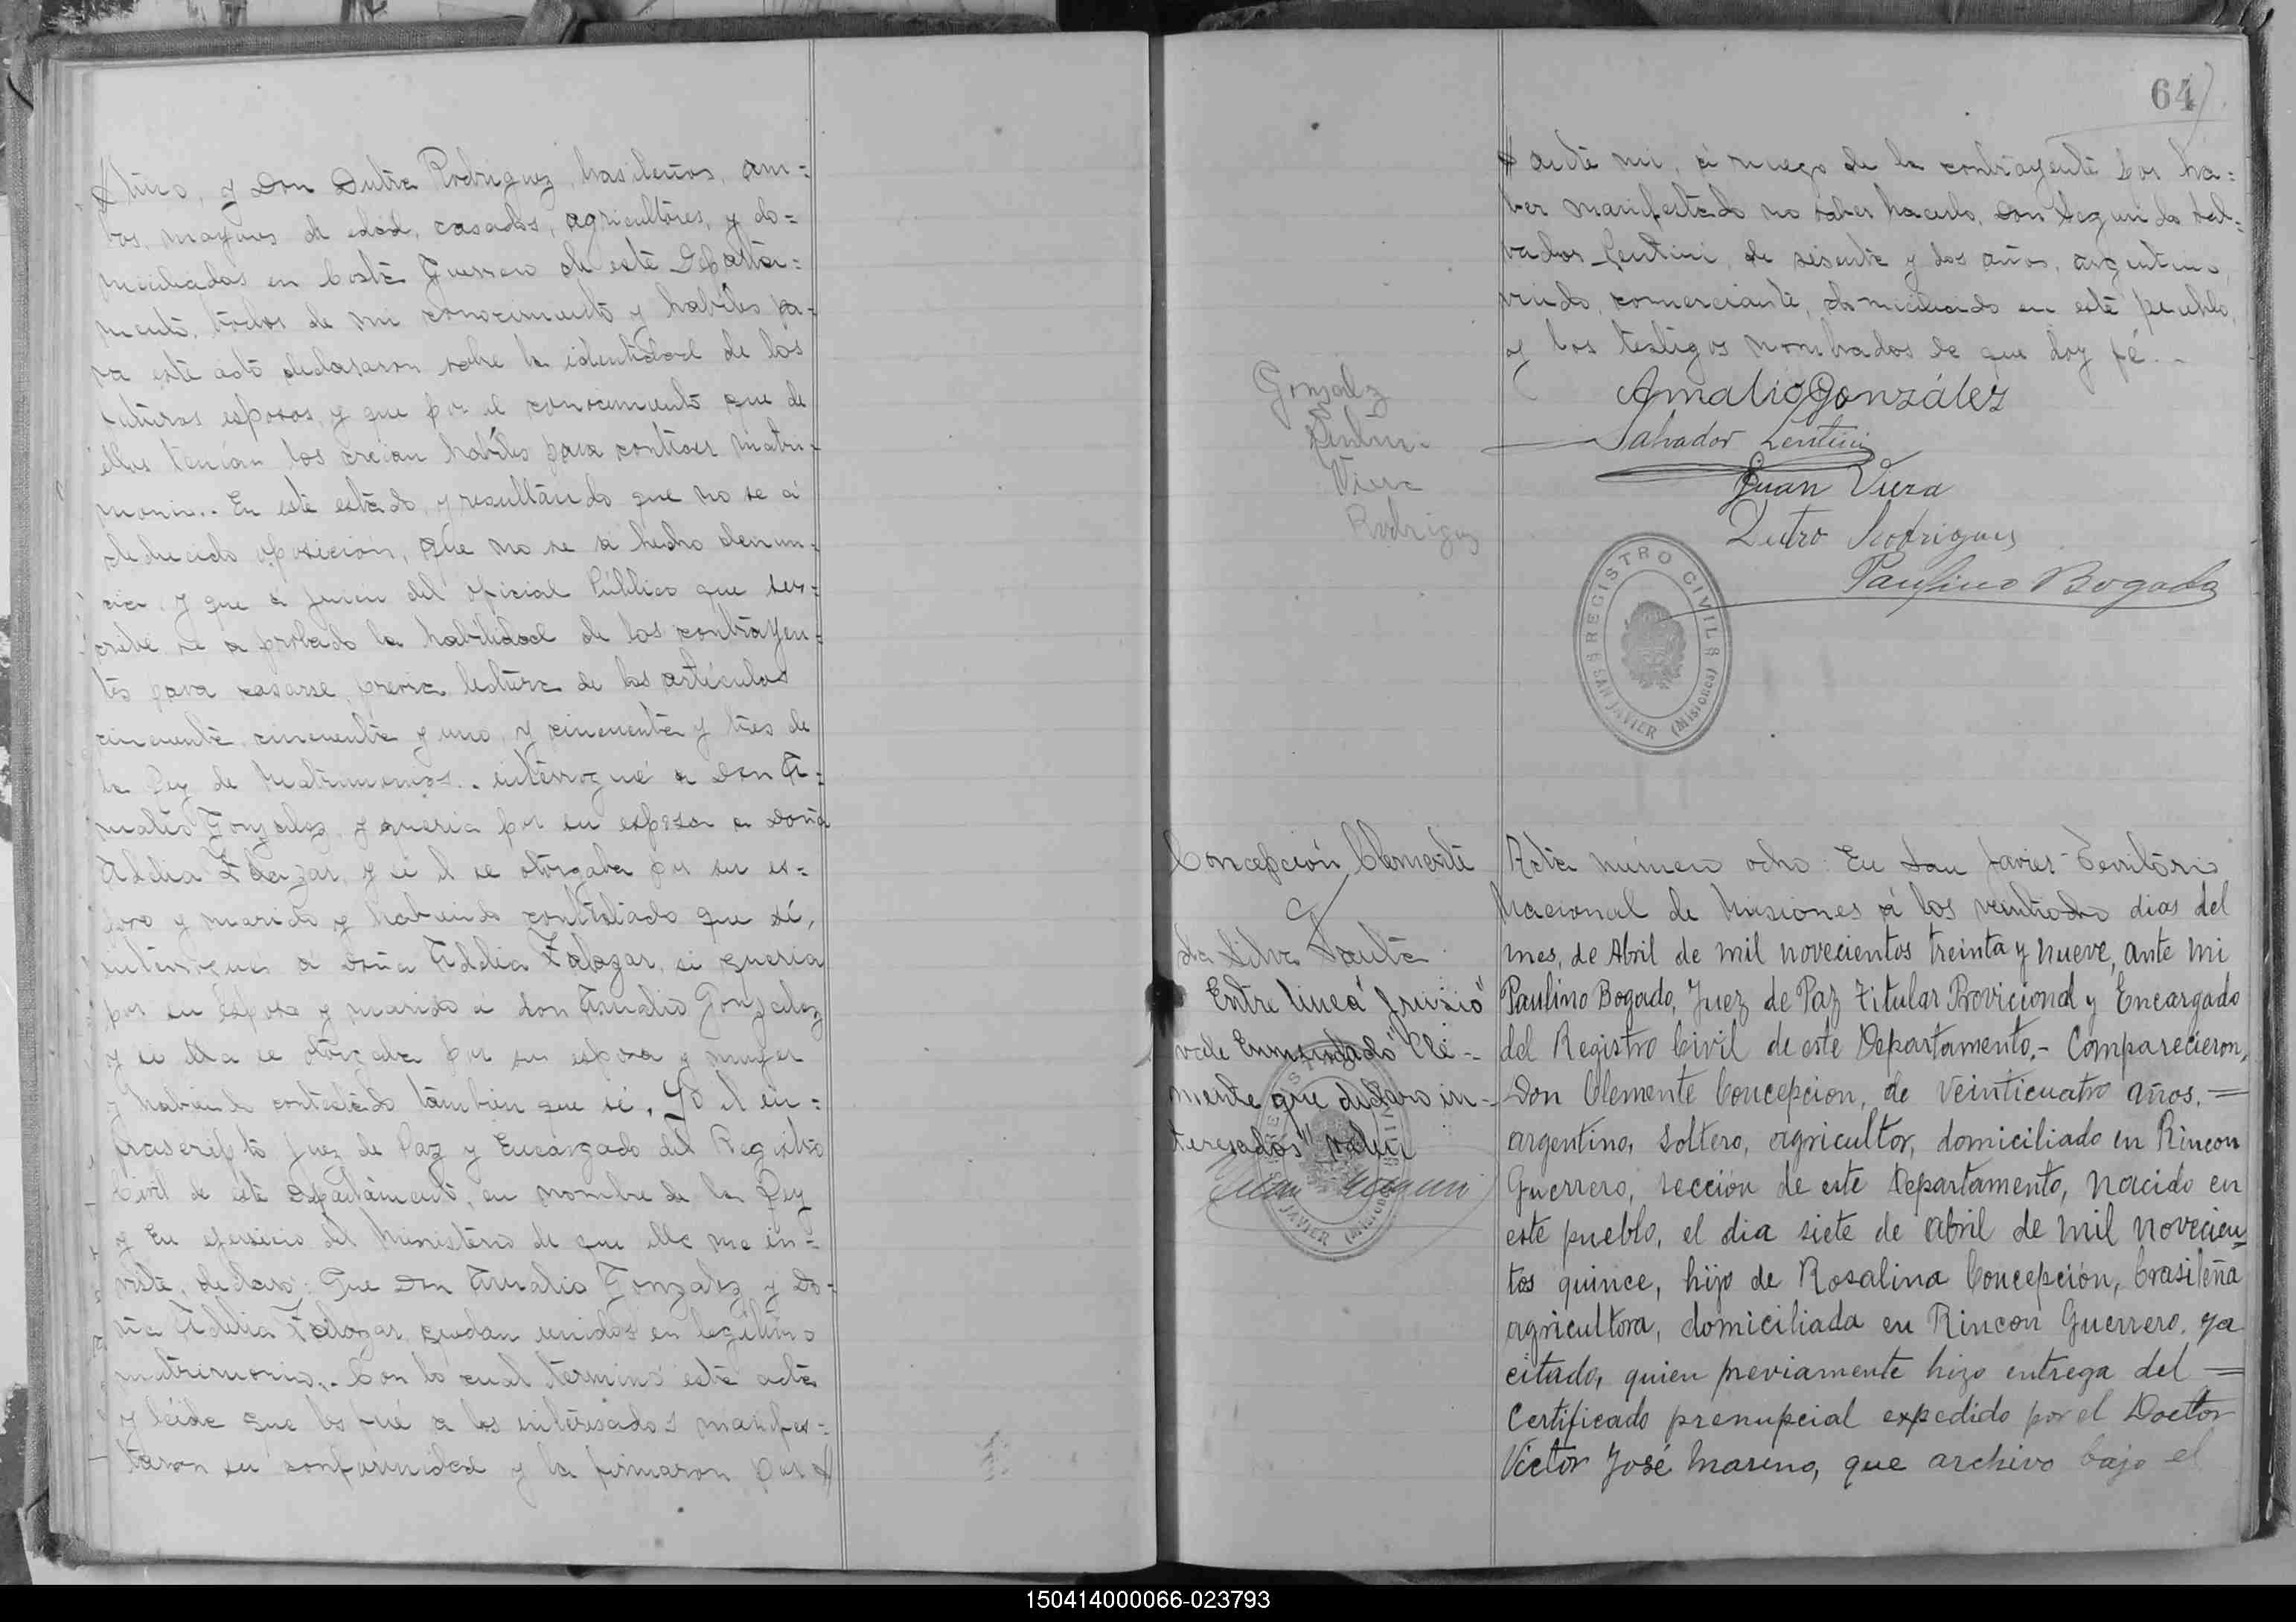 tino, y Don Dutra Rodriguez, brasileños, am=
bos, mayores de edad, casados, agricultores, y do=
miciliados en Costa Guerrero de este Departa=
mento, todos de mi conocimiento y habiles pa=
ra este acto declararon sobre la identidad de los
futuros esposos, y que por el conocimiento que de
ellos tenian los creian habiles para contraer matri=
monio.. En este estado, y resultando que no se a
deducido oposición, que no se a hecho denun=
cia, y que a juicio del oficial Público que sus=
cribe se a probado la habilidad de los contrayen=
tes para casarse, previa lectura de los articulos
cincuenta, cincuenta y uno, y cincuenta y tres de
la Ley de Matrimonios.. interrogué a Don A=
malio Gonzalez, y queria por su esposa a Doña
Adelia Zalazar, y si el se otorgaba por su es=
poso y marido y habiendo contestado que sí,
interrogué a Doña Adelia Zalazar, si queria
por su esposo y marido a don Amalio Gonzalez
y si ella se otorgaba por su esposa y mujer
y habiendo contestado tambien que sí, Yo el in=
frascripto Juez de Paz y Encargado del Registro
Civil de este Departamento, en nombre de la Ley
y en ejercicio del Ministerio de que ella me in=
viste, declaro: Que Don Amalio Gonzalez y Do=
ña Adelia Zalazar, quedan unidos en legitimo
matrimonio.. Con lo cual terminó este acta
y leida que les fué a los interesados manifes=
taron su conformidad y la firmaron por
64
ante mi, á ruego de la contrayente por ha=
ber manifestado no saber hacerlo, Don Segundo Sal=
vador Lentini, de sesenta y dos años, argentino,
viudo, comerciante, domiciliado en este pueblo,
y los testigos nombrados de que doy fé..
Gonzalez
Lentini
Viera
Rodriguez
Amalio González
Salvador Lentini
Juan Viera
Dutro Rodrigues
Paulino Bogado
REGISTRO CIVIL
SAN JAVIER (Misiones)
Concepción, Clemente
y
da Silva Fausta
Entre linea
vale Enmendado "Cle-
mente que declaro in-
teresados" valen
JAVIER (Misiones)
Acta número ocho: En San Javier Territorio
Nacional de Misiones á los veintiocho dias del
mes, de Abril de mil novecientos treinta y nueve, ante mi
Paulino Bogado, Juez de Paz Titular Provicional y Encargado
del Registro Civil de este Departamento.- Comparecieron,
Don Clemente Concepcion, de veinticuatro años, =
argentino, soltero, agricultor, domiciliado en Rincon
Guerrero, sección de este Departamento, nacido en
este pueblo, el dia siete de abril de mil novecien=
tos quince, hijo de Rosalina Concepción, brasileña
agricultora, domiciliada en Rincon Guerrero, ya
citado, quien previamente hizo entrega del =
Certificado prenupcial expedido por el Doctor
Victor José Mareno, que archivo bajo el
150414000066-023793